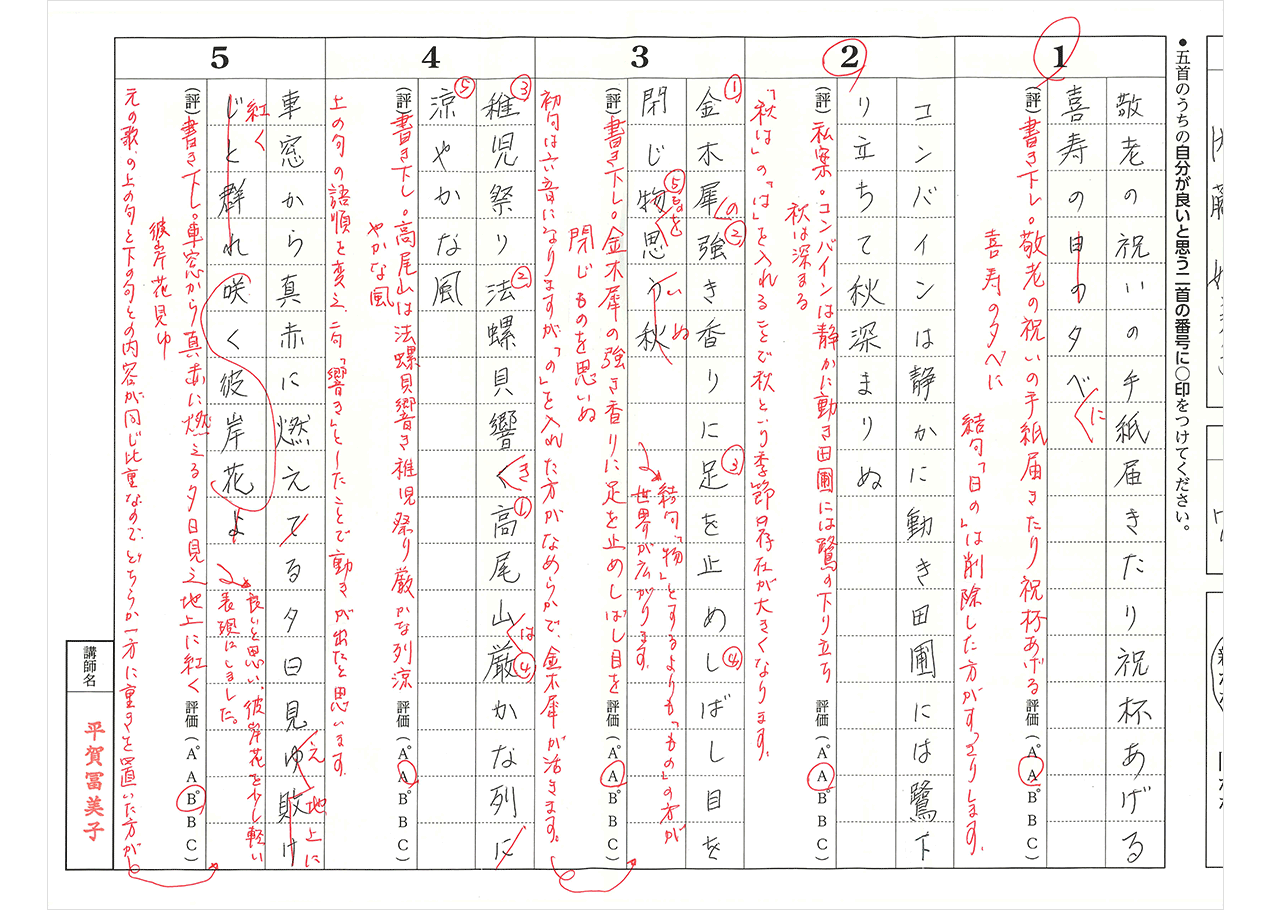 ● 五首のうちの自分が良いと思う二首の番号に○印をつけてください。
1
敬老の祝いの手紙届きたり祝杯あげる
喜寿の日の夕べ
に
(評)書き下し。敬老の祝いの手紙届きたり祝杯あげる
喜寿の夕べに
結句「日の」は削除した方がすっきりします。
評価(A° A B° B C)
2
コンバインは静かに動き田圃には鷺下
り立ちて秋深まりぬ
(評)私案。コンバインは静かに動き田圃には鷺の下り立ち
秋は深まる
「秋は」の「は」を入れることで秋という季節の存在が大きくなります。
評価(A° A B° B C)
3
①金木犀②強き香りに③足を止め④しばし目を
の
閉じ⑤物思う秋
を
いぬ
(評)書き下し。金木犀の強き香りに足を止めしばし目を
閉じものを思いぬ
結句「物」とするよりも「もの」の方が
世界が広がります。
初句は六音になりますが「の」を入れた方がなめらかで、金木犀が活きます。
評価(A° A B° B C)
4
③稚児祭り②法螺貝響く①高尾山④厳かな列に
き
は
⑤涼やかな風
(評)書き下し。高尾山は法螺貝響き稚児祭り厳かな列涼
やかな風
上の句の語順を変え、二句「響き」としたことで動きが出たと思います。
評価(A° A B° B C)
5
車窓から真赤に燃えてる夕日見ゆ敗け
え
地上に
じと群れ咲く彼岸花よ
紅く
(評)書き下し。車窓から真赤に燃える夕日見え地上に紅く
彼岸花見ゆ
良いと思い、彼岸花を少し軽い
表現にしました。
元の歌、の上の句と下の句との内容が同じ比重なので、どちらか一方に重きを置いた方が
評価(A° A B° B C)
講師名
平賀冨美子